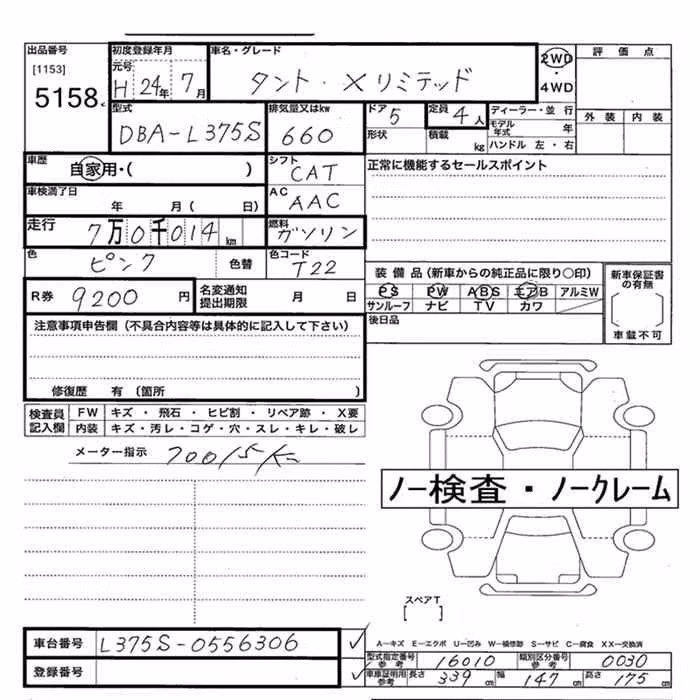 出品番号 [1153] 5158
初度登録年月 元号 H 24年 7月
車名・グレード タント・Xリミテッド
2WD・4WD
評価点
外装 内装
型式 DBA-L375S
排気量又はkw 660
ドア 5
形状
定員 4人
積載 kg
ディーラー・並行
モデル年式 年
ハンドル 左・右
車歴 自家用・( )
シフト CAT
正常に機能するセールスポイント
車検満了日 年 月( 日)
AC AAC
走行 7万0千014km
燃料 ガソリン
色 ピンク 色替
色コード T22
装備品(新車からの純正品に限り○印)
PS PW ABS エアB アルミW
サンルーフ ナビ TV カワ
新車保証書の有無
[ ]
車載不可
R券 9200円
名変通知提出期限 月 日
後日品
注意事項申告欄(不具合内容等は具体的に記入して下さい)
修復歴 有 〔箇所 〕
検査員記入欄
FW キズ・飛石・ヒビ割・リペア跡・X要
内装 キズ・汚レ・コゲ・穴・スレ・キレ・破レ
メーター指示 70015km
ノー検査・ノークレーム
スペアT
[ ]
車台番号 L375S-0556306
登録番号
A－キズ E－エクボ U－凹み W－補修跡 S－サビ C－腐食 XX－交換済
型式指定番号 参考 16010 類別区分番号 参考 0030
車庫証明用 参考 長さ 339cm 幅 147cm 高さ 175cm